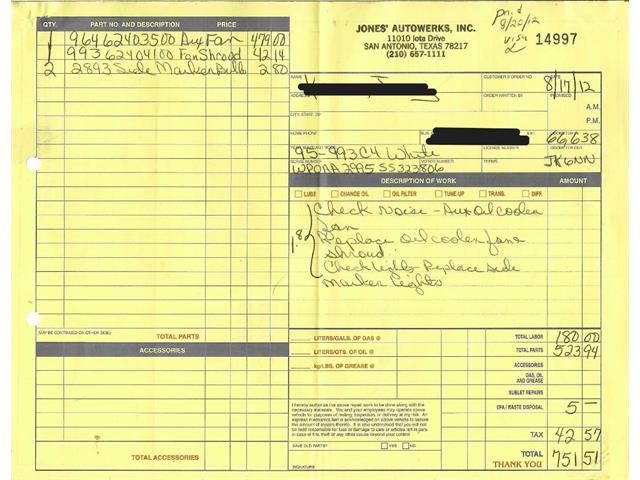 pn.d
8/20/12
visa
14997
JONES' AUTOWERKS, INC.
11010 Iota Drive
SAN ANTONIO, TEXAS 78217
(210) 657-1111
QTY. PART NO. AND DESCRIPTION PRICE
1 96462403500 Aux Fan 479 00
1 99362404100 Fan Shroud 42 14
2 2893 Side Marker Bulb 2 80
NAME CUSTOMER'S ORDER NO. 8/17/12
ADDRESS ORDER WRITTEN BY PROMISED
A.M.
CITY, STATE, ZIP
P.M.
HOME PHONE EXT. 66,638
95-993C4 White
SERIAL NUMBER MOTOR NUMBER TERMS
WPOAA2995SS323806 JK6NN
DESCRIPTION OF WORK AMOUNT
LUBE CHANGE OIL OIL FILTER TUNE-UP TRANS. DIFF.
Check Noise - Aux Oil cooler
fan
1.8 Replace Oil cooler fan &
shroud
Check Lights Replace side
marker lights
(MAY BE CONTINUED ON OTHER SIDE) TOTAL PARTS
ACCESSORIES
TOTAL ACCESSORIES
LITERS/GALS. OF GAS @ TOTAL LABOR 180 00
LITERS/QTS. OF OIL @ TOTAL PARTS 523 94
kg/LBS. OF GREASE @ ACCESSORIES
GAS, OIL
AND GREASE
SUBLET REPAIRS
I hereby authorize the above repair work to be done along with the
necessary materials. You and your employees may operate above
vehicle for purposes of testing, inspection, or delivery at my risk. An
express mechanic's lien is acknowledged on above vehicle to secure
the amount of repairs thereto. It is also understood that you will not
be held responsible for loss or damage to cars or articles left in
cars in case of fire, theft or any other cause beyond your control.
EPA / WASTE DISPOSAL 5 -
TAX 42 57
SAVE OLD PARTS? YES NO
SIGNATURE
TOTAL 751 51
THANK YOU